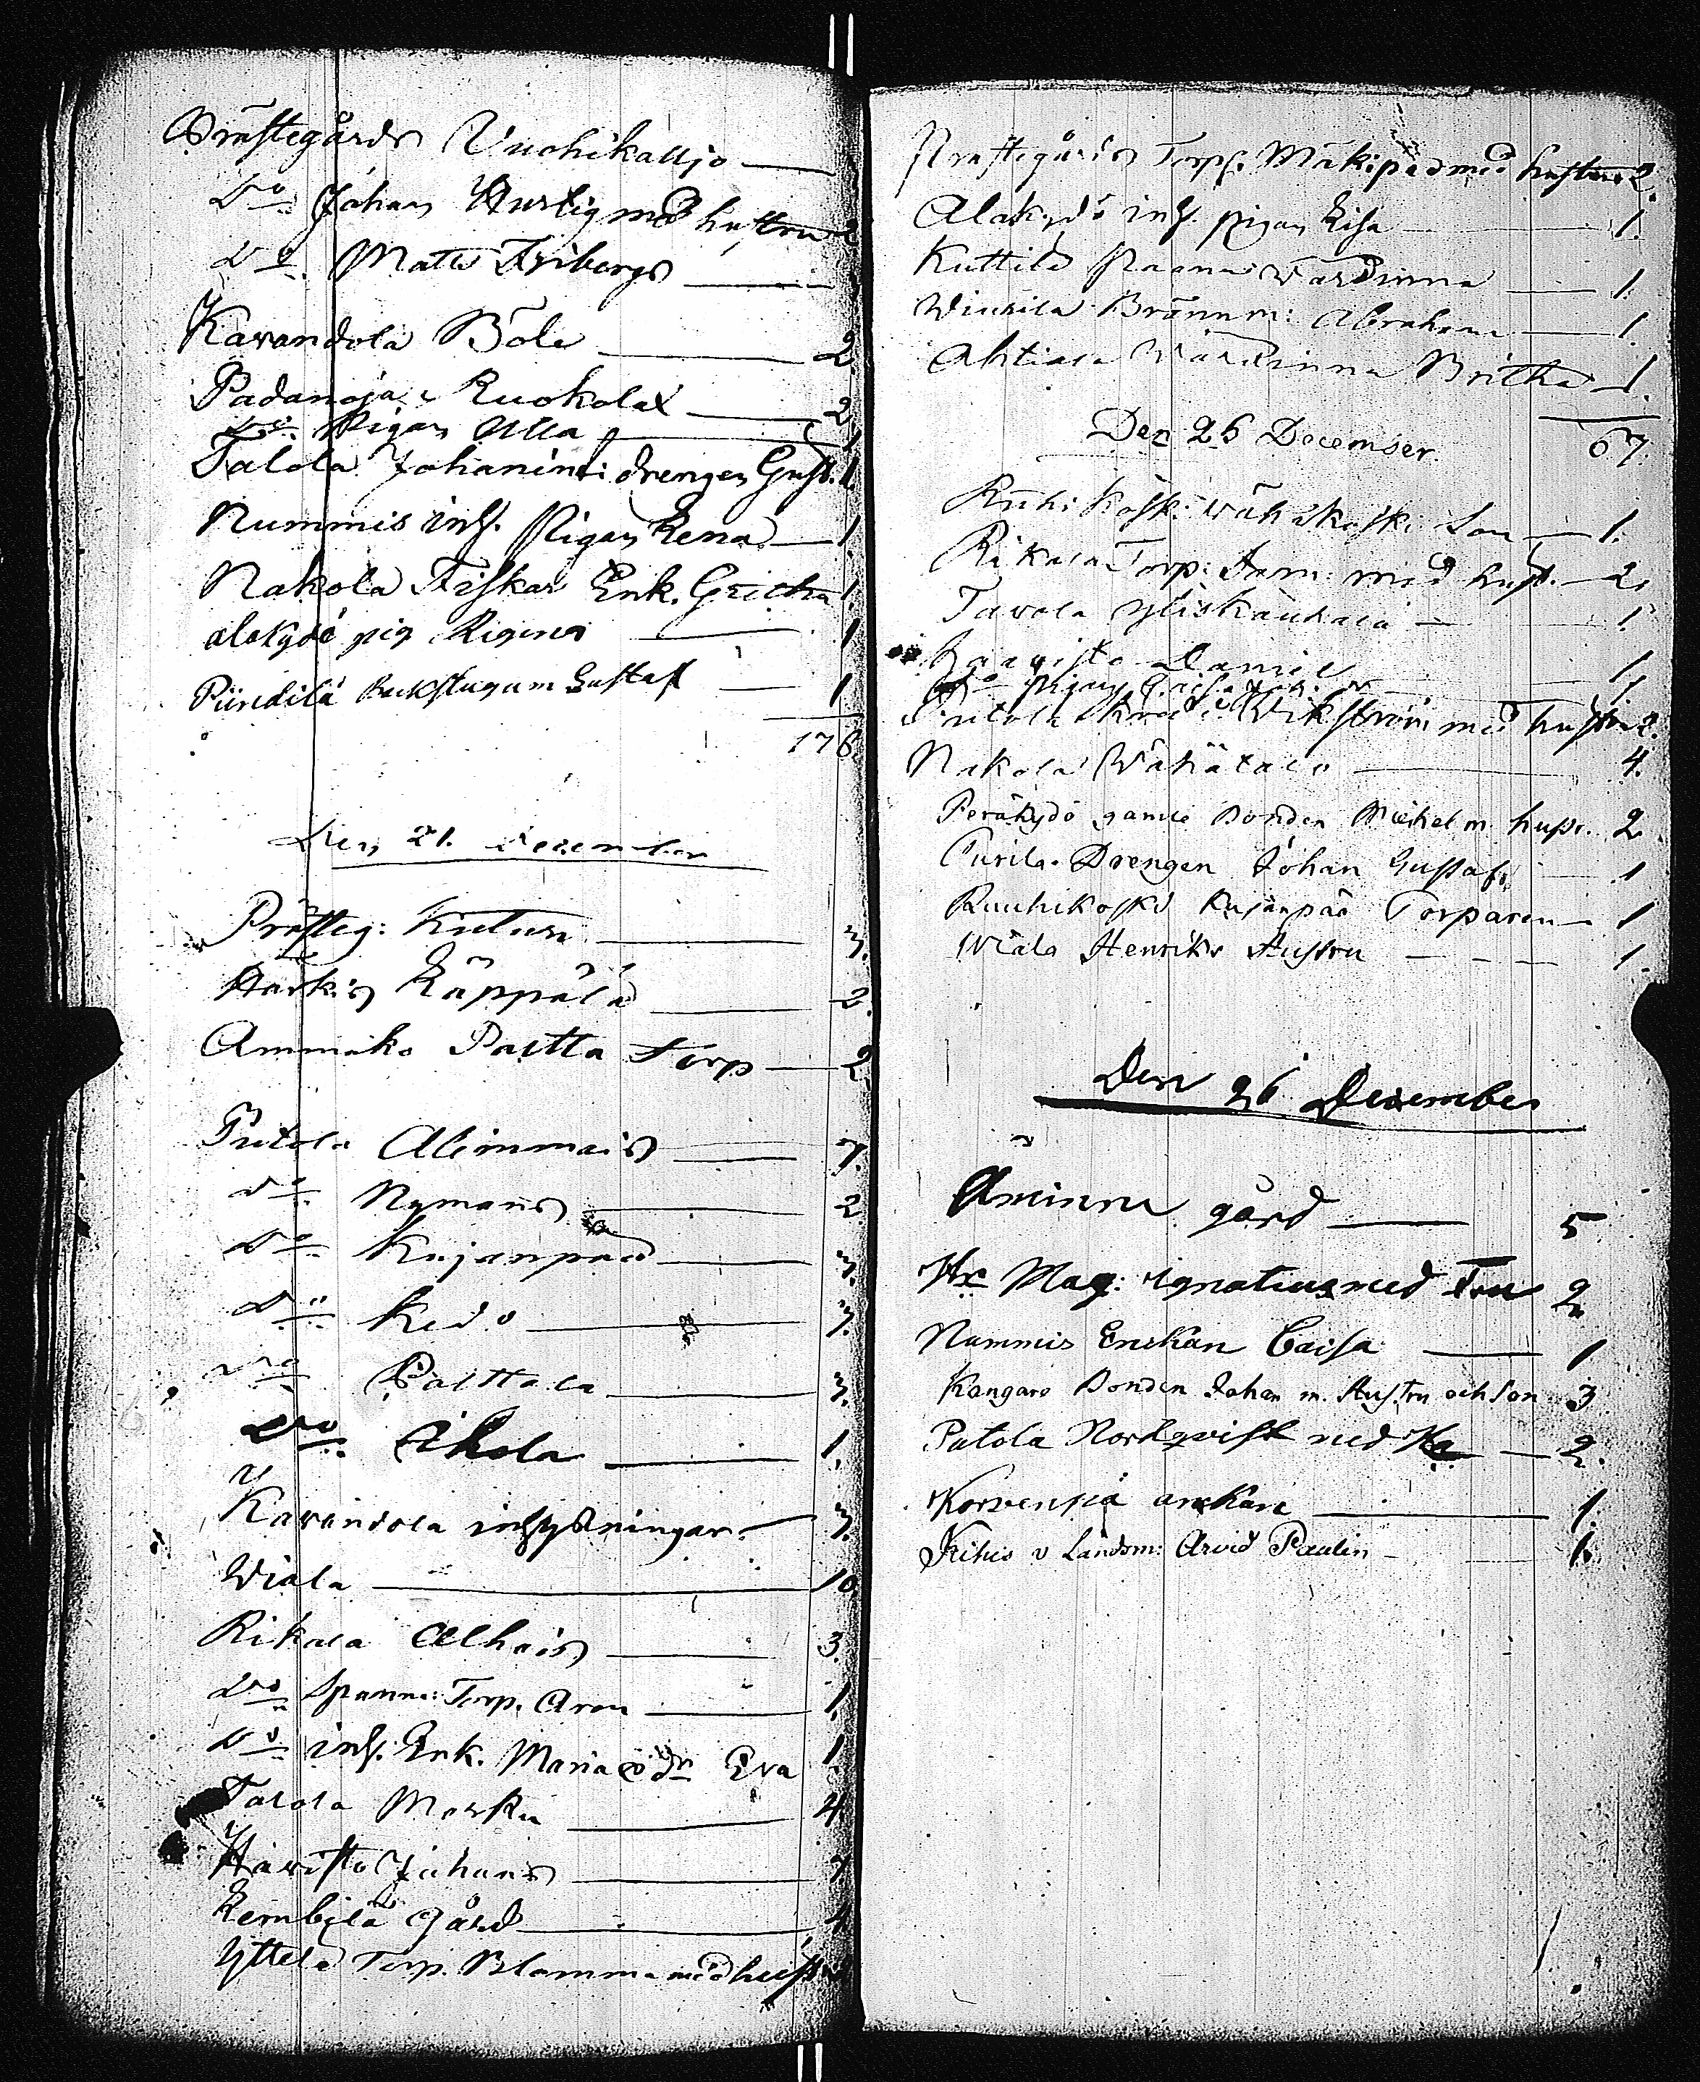 Prästegårds Vuohikalljo —
Do Johan Hurtig med hustru 2
Do Matts Fribergs —
Karandola Böle — 2
Padanoja Ruokola — 2
Do Pigan Ulla — 1
Talola Johanin: drengen Gust. 1.
Nummis inh. Pigan Lena — 1
Nakola Fiskar Enk. Gretha 1.
alakydö pig Regina — 1
Piindilä Backstugum Gustaf — 1
178.
Den 21. December
Prästeg: — 3.
Harkis Käppälä — 2.
Ammako Paitta Torp — 2
Putola Alimmais — 7.
Do Nymans — 2
Do Kujanpää — 3.
Do Kedo — 3.
Do Paittala — 3.
Do Ahola — 1.
Karandola inhysningar — 3.
Wiala — 10.
Rikala Alhais — 3.
Do Spanm: Torp. Aron — 1.
Do inh. Enk. Maria o dr Eva 1
Talola Marku — 4.
Haristo Juhans — 7
Kembilä Gård — 4
Yttelä Torp. Blomma med hust
Prästegårds Torp. Mäkipää med hustru 2.
Alakydö inh. pigan Lisa — 1.
Kuttila Paanu Wärdinna — 1.
Brännm: Abraham — 1.
Ahtiala Wärdinna Britha — 1.
67.
Den 25 December.
Ruhikoski Wähäkoski Son — 1.
Rikala Torp: med hust. — 2.
Tavola Yliskauhala — 1.
Haristo Daniel — 1.
Do pigan — 1
Putola Wikström med hustru 2.
Nakola Wähätalo — 4.
Peräkydö gamle Bonden Michel m hustr. 2
Purila Drengen Johan Gustafs — 1
Ruuhikoski Kujanpää Torparen — 1
Wiala Henriks Hustru — 1.
Den 26 December
Åminne gård — 5
Hr Mag: Ignatius med Fru 2
Nummis Enckan Caisa — 1
Kangars Bonden Johan m. Hustru och Son 3
Putola Nordqvist med Ha — 2.
Korvenpä anckan — 1.
Kihis v Länsm: Arvid Paulin — 1.